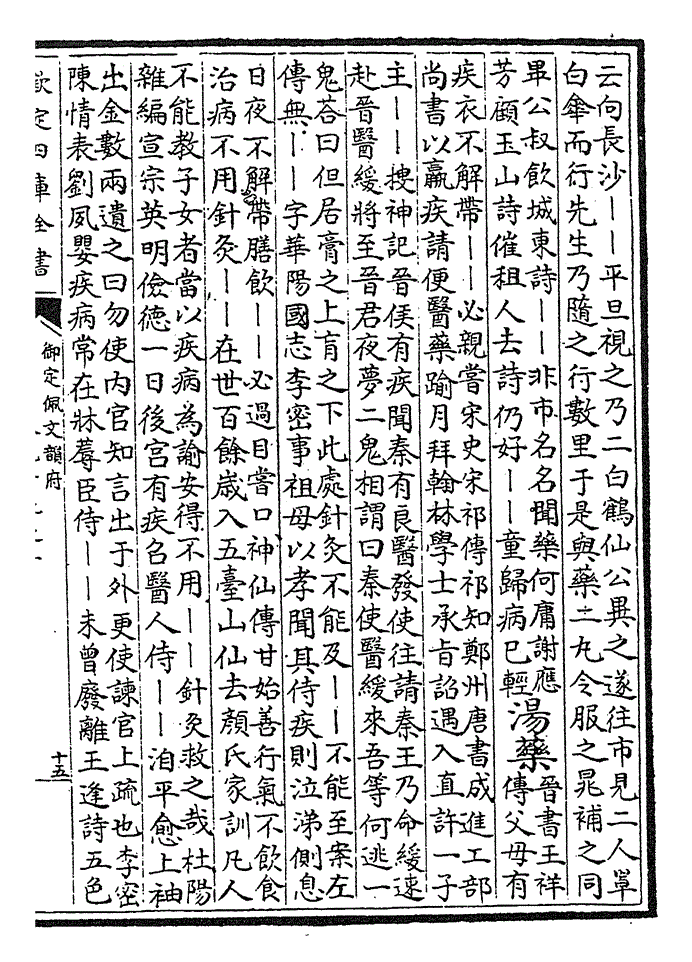 云向長沙——平旦視之乃二白鶴仙公異之遂往市見二人罩
白傘而行先生乃隨之行數里于是與藥二丸令服之晁補之同
畢公叔飲城東詩——非市名名聞藥何庸謝應
芳顧玉山詩催租人去詩仍好——童歸病已輕
湯藥
晉書王祥
傳父毋有
疾衣不解帶——必親嘗宋史宋祁傳祁知鄭州唐書成進工部
尚書以羸疾請便醫藥踰月拜翰林學士承旨詔遇入直許一子
主——搜神記晉侯有疾聞秦有良醫發使往請秦王乃命緩速
赴晉醫緩將至晉君夜夢二鬼相謂曰秦使醫緩來吾等何逃一
鬼荅曰但居膏之上肓之下此處針灸不能及——不能至案左
傳無——字華陽國志李密事祖母以孝聞其侍疾則泣涕側息
日夜不解帶膳飲——必過目嘗口神仙傳甘始善行氣不飲食
治病不用針灸——在世百餘歲入五臺山仙去顏氏家訓凡人
不能教子女者當以疾病為諭安得不用——針灸救之哉杜陽
雜編宣宗英明儉德一日後宮有疾召醫人侍——洎平愈上袖
出金數兩遺之曰勿使内官知言出于外更使諫官上疏也李密
陳情表劉夙嬰疾病常在牀蓐臣侍——未曾廢離王逢詩五色
欽定四庫全書
御定佩文韻府
十五